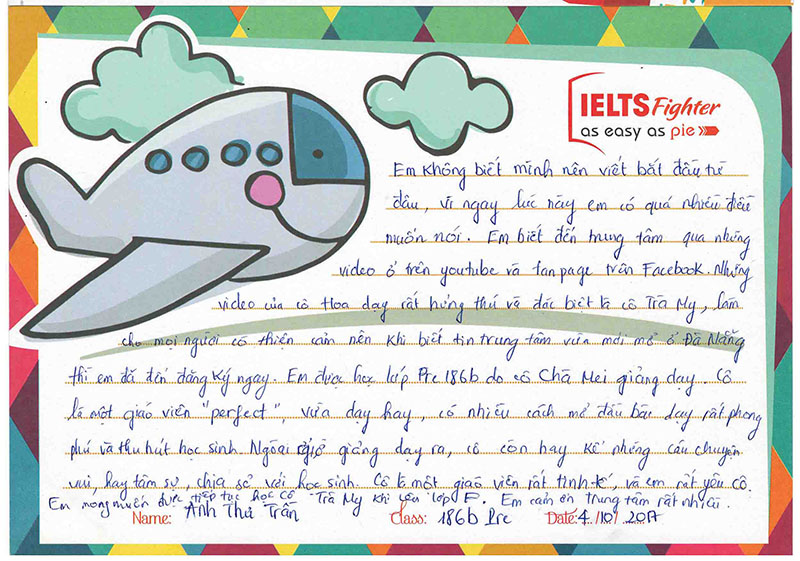 IELTS Fighter
as easy as pie
Em không biết mình nên viết bắt đầu từ
đâu, vì ngay lúc này em có quá nhiều điều
muốn nói. Em biết đến trung tâm qua những
video ở trên youtube và fanpage trên Facebook. Những
video của cô Hoa dạy rất hứng thú và đặc biệt là cô Trà My, làm
cho mọi người có thiện cảm nên khi biết tin trung tâm vừa mới mở ở Đà Nẵng
thì em đã đến đăng ký ngay. Em được học lớp Pre 186b do cô Chà Mei giảng dạy. Cô
là một giáo viên "perfect", vừa dạy hay, có nhiều cách mở đầu bài dạy rất phong
phú và thu hút học sinh. Ngoài giờ giảng dạy ra, cô còn hay kể những câu chuyện
vui, hay tâm sự, chia sẻ với học sinh. Cô là một giáo viên rất tinh tế, và em rất yêu cô.
Em mong muốn được tiếp tục học cô Trà My khi lên lớp . Em cảm ơn trung tâm rất nhiều.
Name: Anh Thư Trần Class: 186b Pre Date: 4/10/2017